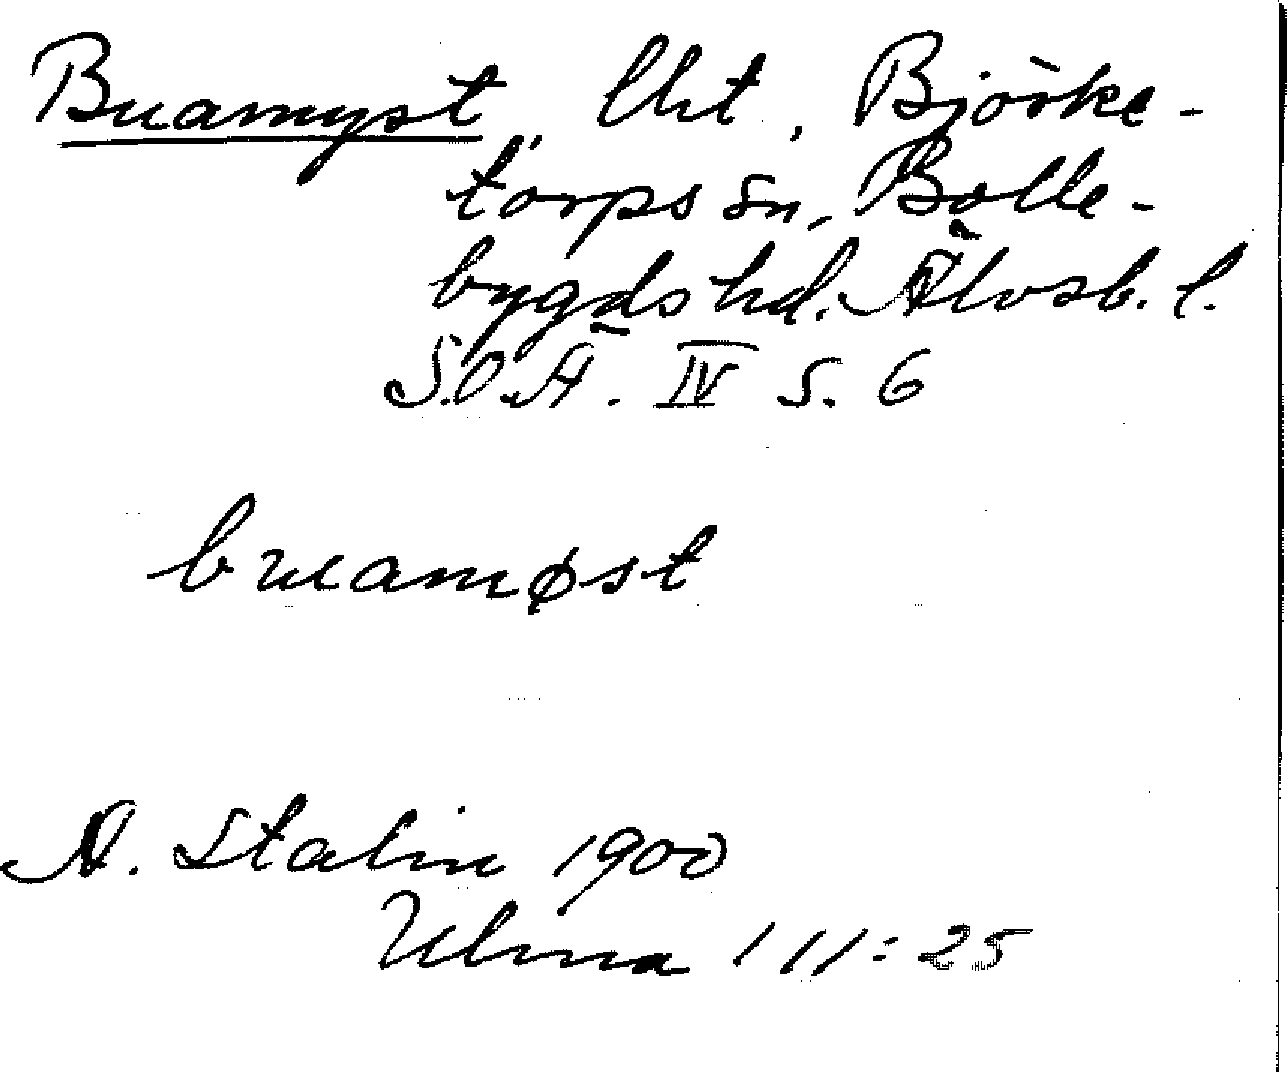 Buamyst, Uht, Björke-
torps sn, Bolle-
bygds hd. Älvsb. l.
S.O.Ä. IV s. 6
buamøst
A. Stalin 1900
Ulma 111:25